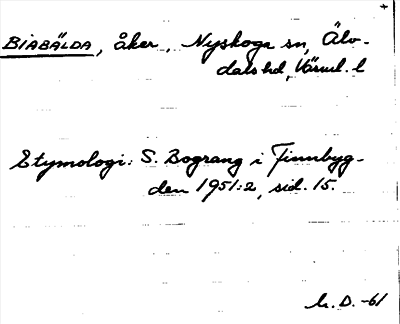 BIABÄLDA, åker, Nyskoga sn, Älv-
dals hd, Värml. l
Etymologi: S. Bograng i Finnbyg-
den 1951:2, sid. 15.
D. -61